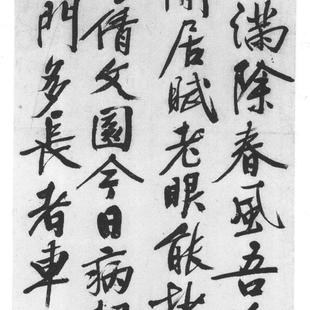 滿除春風吾
閒居賦老眼能
倩文園今日病
門多長者車